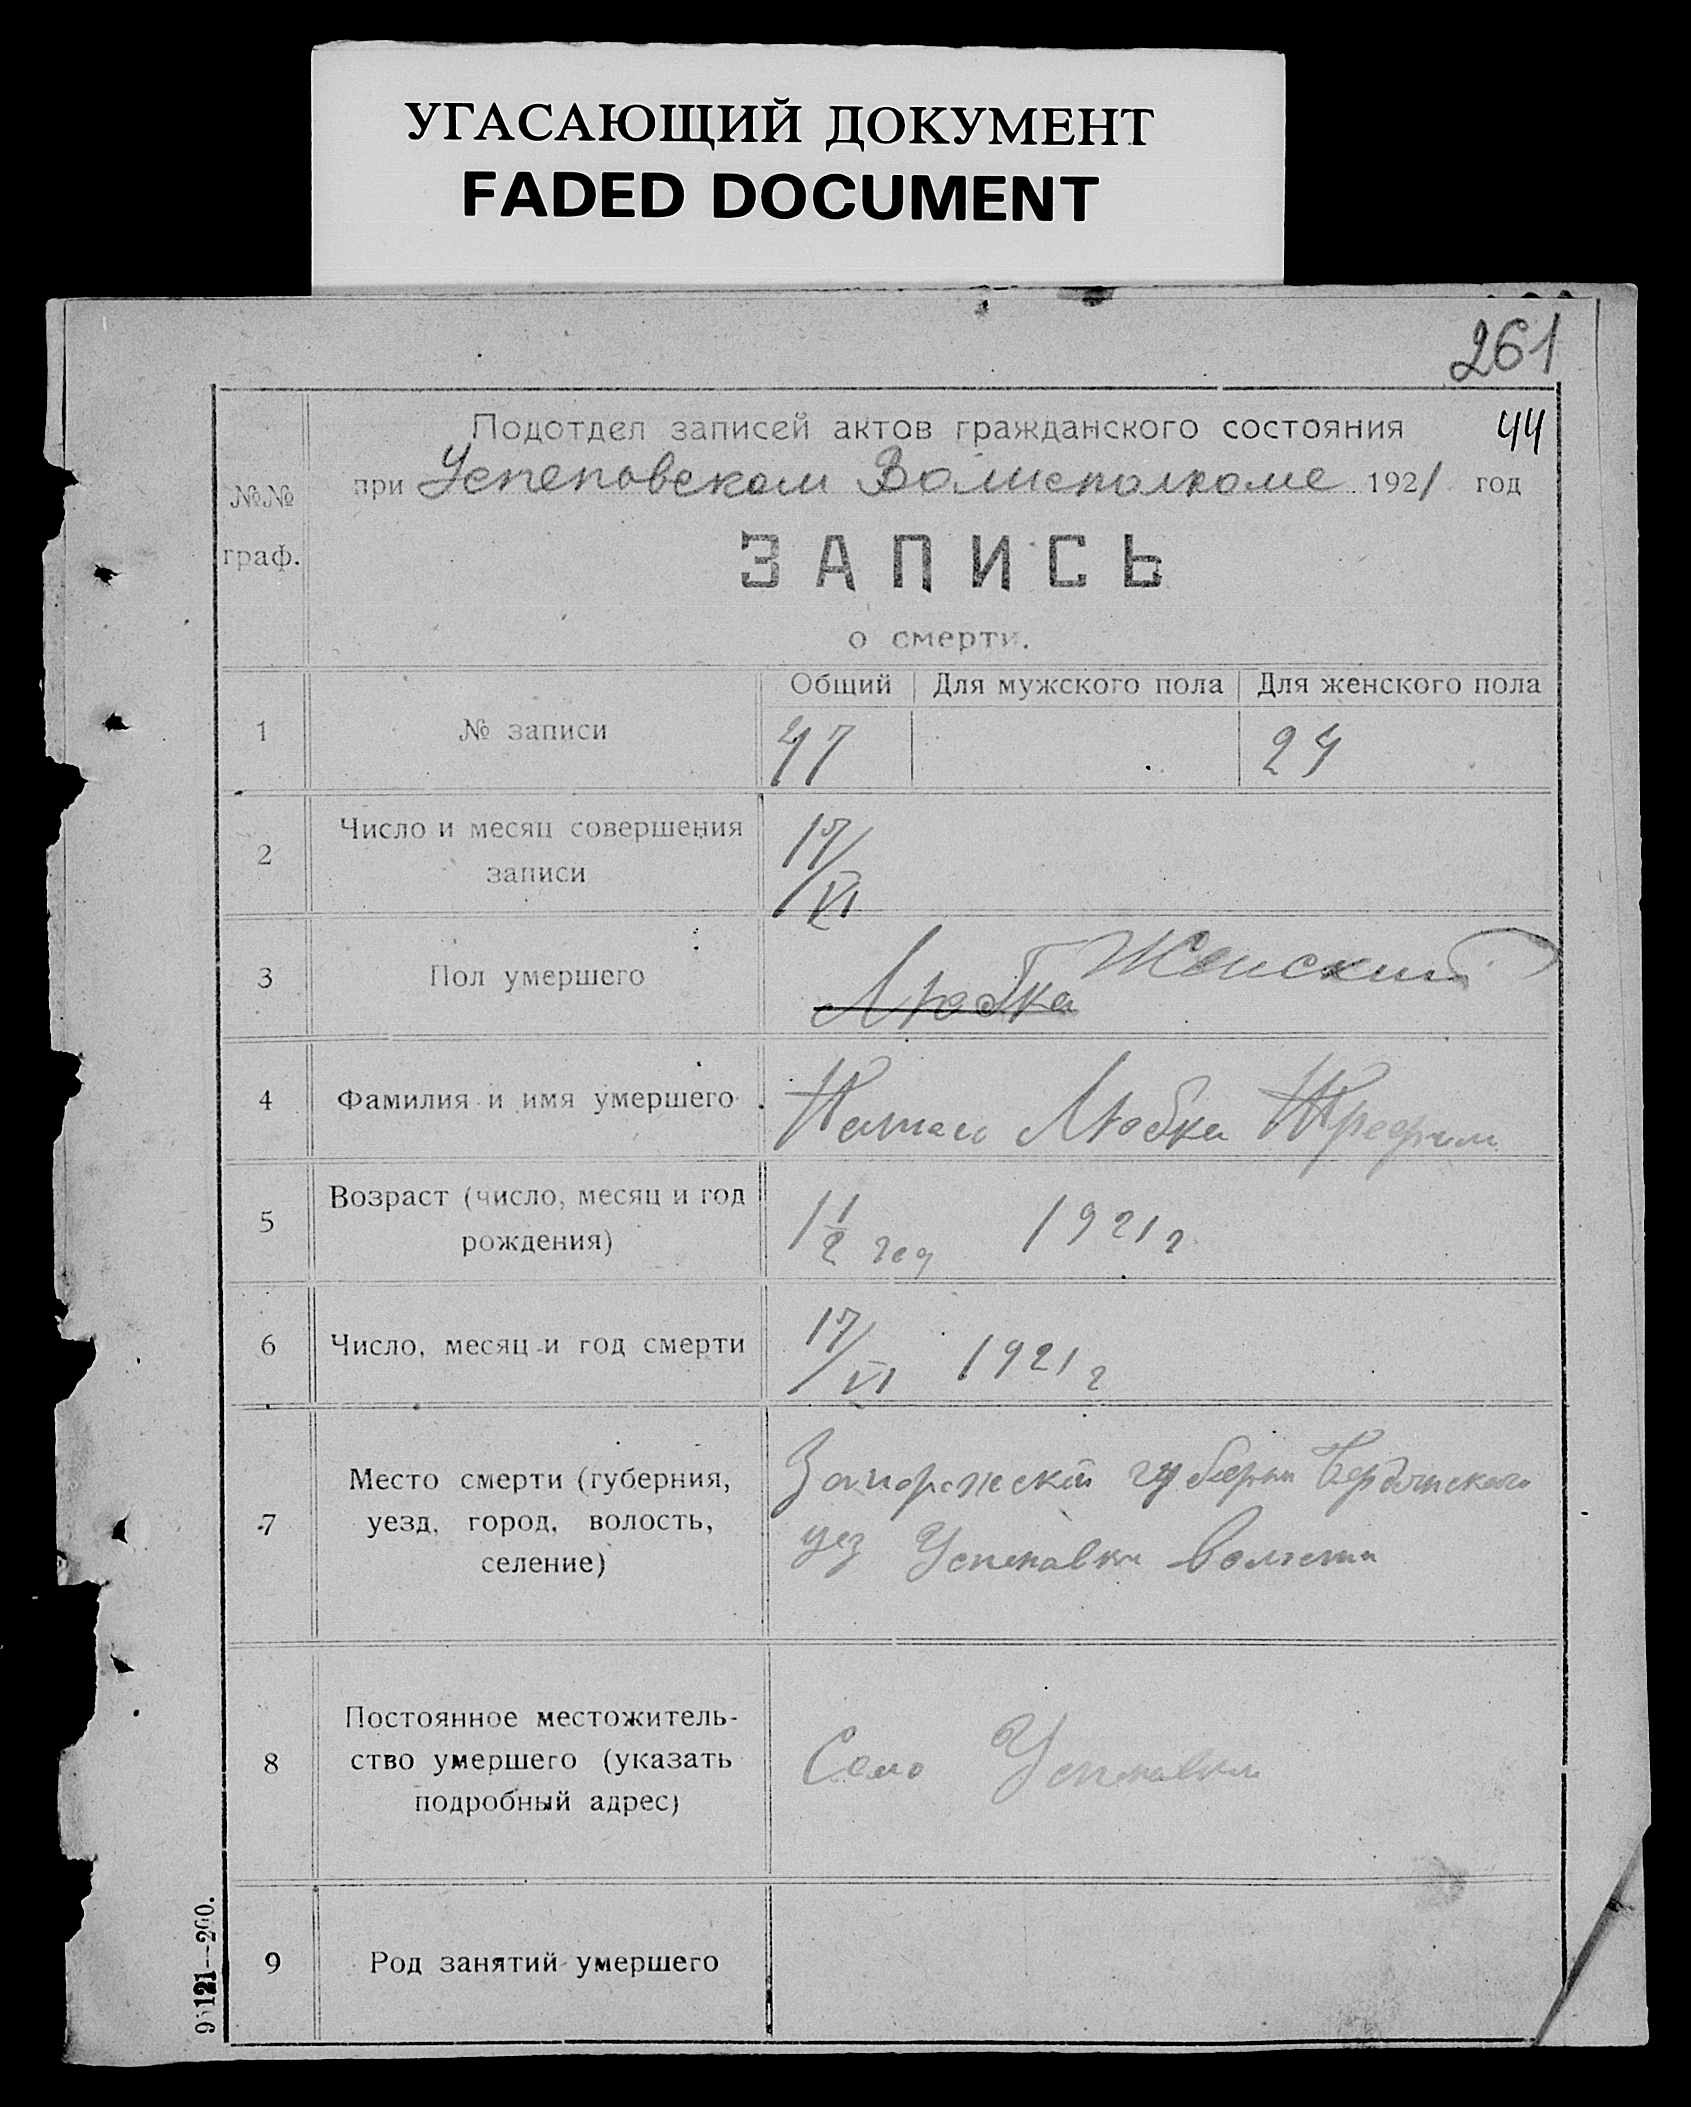 УГАСАЮЩИЙ ДОКУМЕНТ
FADED DOCUMENT
261
44
Подотдел записей актов гражданского состояния
при Успеновском Волисполкоме 1921 год
№№
граф.
ЗАПИСЬ
о смерти.
Общий Для мужского пола Для женского пола
1 № записи 47 24
2 Число и месяц совершения
записи
17/VI
3 Пол умершего Любка Женский
4 Фамилия и имя умершего Любка
5 Возраст (число, месяц и год
рождения)
1 1/2 год 1921 г
6 Число, месяц и год смерти 17/VI 1921 г
7 Место смерти (губерния,
уезд, город, волость,
селение)
Запорожской губерни Бердянского
уез Волости
8 Постоянное местожитель-
ство умершего (указать
подробный адрес)
Село
9 Род занятий умершего